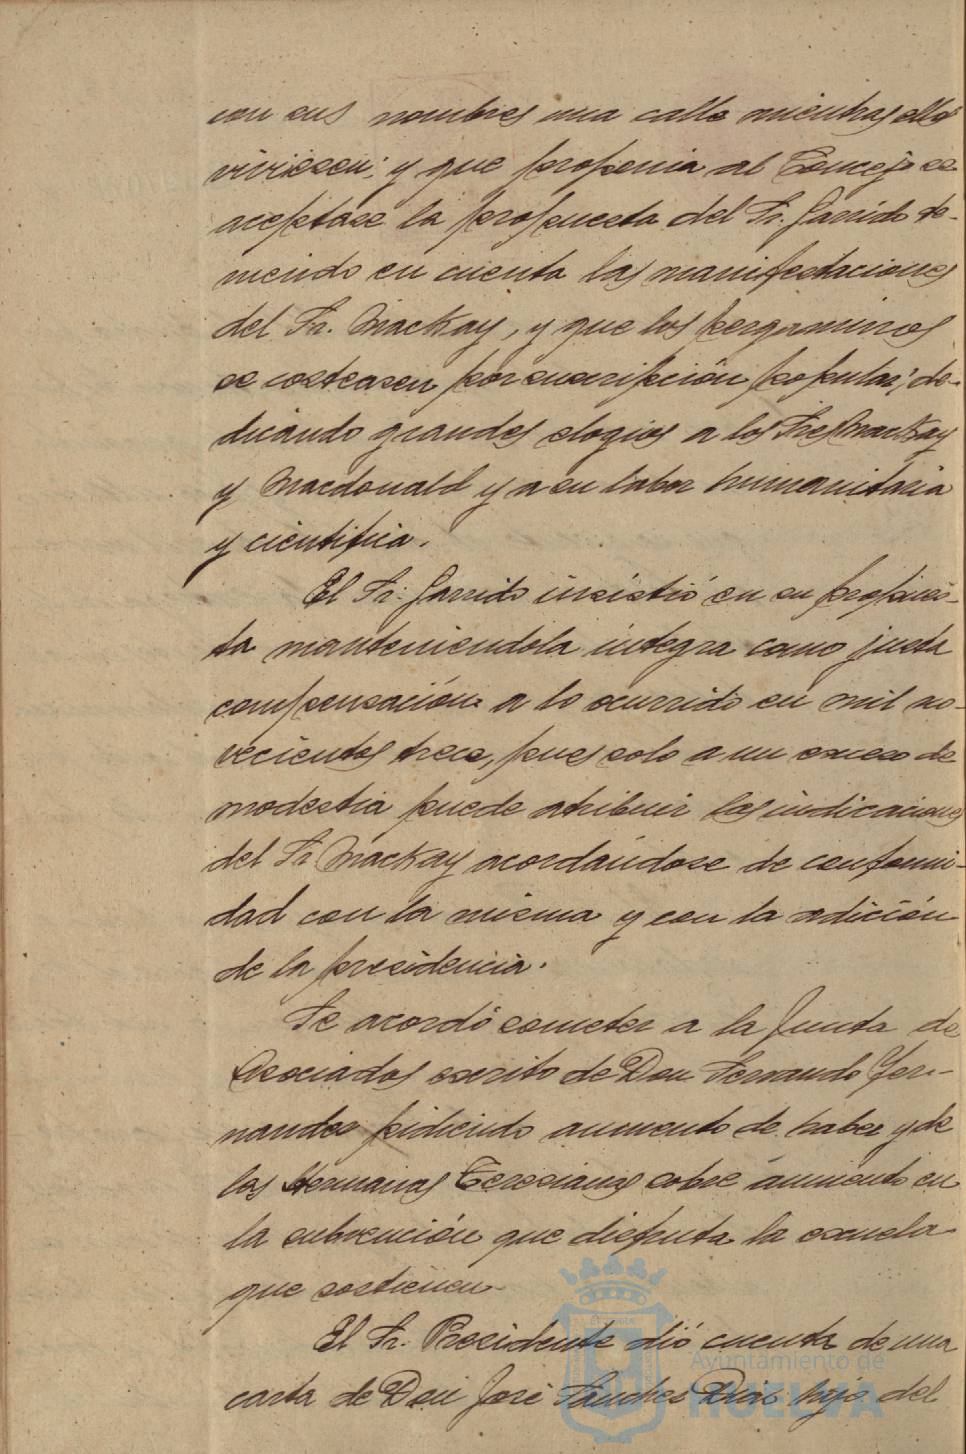 con sus nombres una calle mientras ellos
viviesen; y que proponia al Concejo se
aceptase la propuesta del Sr. Garrido te-
niendo en cuenta las manifestaciones
del Sr. Mackay, y que los pergaminos
se costeasen por suscripción popular, de-
dicando grandes elogios a los Sres Mackay
y Macdonald y a su labor humanitaria
y cientifica.
El Sr. Garrido insistió en su propues-
ta manteniendola integra como justa
compensación a lo ocurrido en mil no-
vecientos trece, pues solo a un exceso de
modestia puede atribuir las indicaciones
del Sr Mackay acordándose de conformi-
dad con la misma y con la adición
de la presidencia.
Se acordó someter a la Junta de
Asociados escrito de Don Fernando Fer-
nandez pidiendo aumento de haber y de
las Hermanas Teresianas sobre aumento en
la subvención que disfruta la escuela
que sostienen.
El Sr. Presidente dió cuenta de una
carta de Don José Sanchez Diaz hijo del
Ayuntamiento de
HUELVA